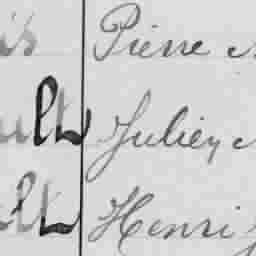 is Pierre
ult Julien
lt Henri